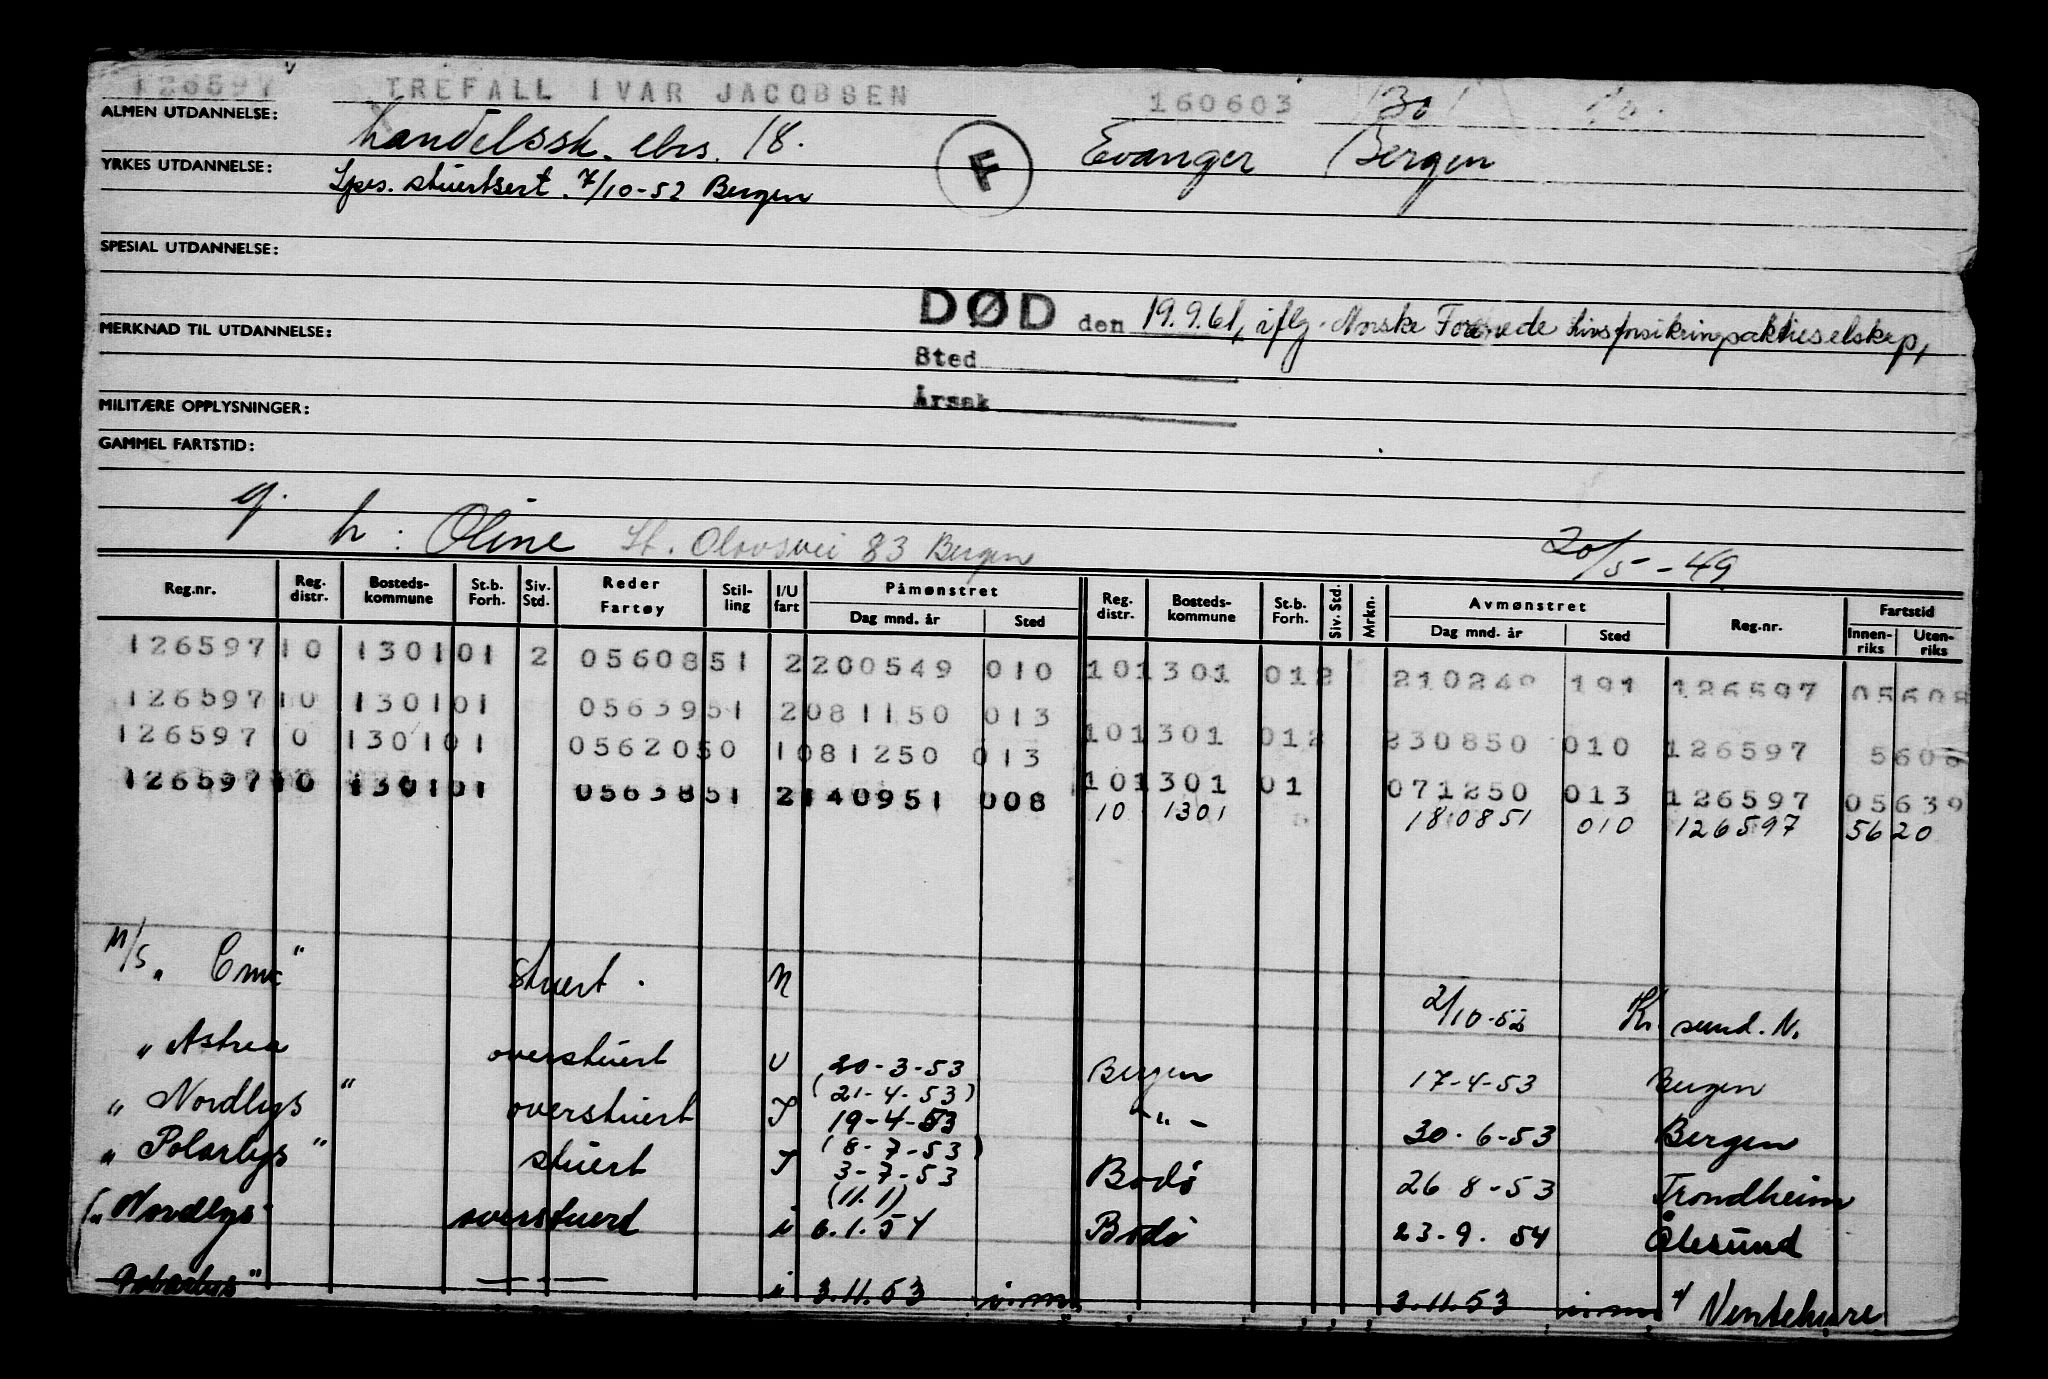 126597 TREFALL IVAR JACOBSEN 160603 1301
ALMEN UTDANNELSE: handelssk. eks. 18. F Evanger Bergen
YRKES UTDANNELSE: Spes. stuertsert. 7/10-52 Bergen
SPESIAL UTDANNELSE:
DØD den 19.9.61, iflg. Norske Forenede Livsforsikringsaktieselskap,
MERKNAD TIL UTDANNELSE:
Sted
Årsak
MILITÆRE OPPLYSNINGER:
GAMMEL FARTSTID:
g. h: Oline St. Olavsvei 83 Bergen 20/5-49
Reg.nr. Reg. distr. Bosteds-kommune St.b. Forh. Siv. Std. Reder Fartøy Stil-ling I/U fart Påmønstret Dag mnd. år Sted Reg. distr. Bosteds-kommune St.b. Forh. Siv. Std. Mrkn. Avmønstret Dag mnd. år Sted Reg.nr. Fartstid Innen-riks Uten-riks
126597 10 1301 01 2 05608 51 2 200549 010 10 1301 01 2 210249 191 126597 05608
126597 10 1301 01 05639 51 2 081150 013
10 1301 01 2 230850 010 126597 5608
126597 10 1301 01 05620 50 1 081250 013
10 1301 01 071250 013 126597 05639
126597 10 1301 01 05638 51 2 140951 008
10 1301 180851 010 126597 5620
M/S " " stuert. N 2/10-52 Kr. sund. N.
" Astrea overstuert U 20-3-53 Bergen 17-4-53 Bergen
(21-4-53)
" Nordlys " overstuert I 19-4-53 - " - 30-6-53 Bergen
(8-7-53)
" Polarlys " stuert I 3-7-53 Bodø 26 8-53 Trondheim
(11.1)
(" Nordlys overstuerd " 6.1.54 Bodø 23.9.54 Ålesund
Polarlys" — " — " 3.11.53 i.m. 3.11.53 i.m. " Ventehyre